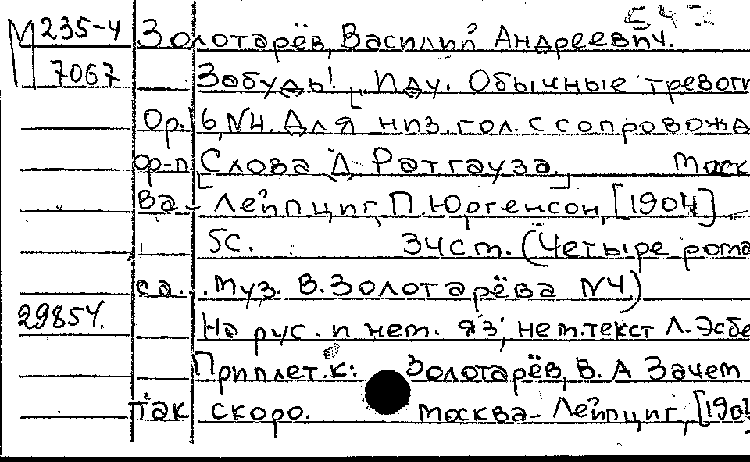 М 235-4 Золотарёв, Василий Андреевич.
7067 Забудь! Иду. Обычные тревоги
Ор. 6, №4. Для низ. гол. с сопровожд
ф-п. [Слова Д. Ратгауза.] Моск
ва - Лейпциг, П. Юргенсон, [1904]
5с. 34см. (Четыре рома
са. Муз. В. Золотарёва №4.)
29854. На рус. и нем. яз; нем. текст Л. Эсбе
Приплет. к: Золотарёв, В. А Зачем
так скоро. Москва - Лейпциг, [190